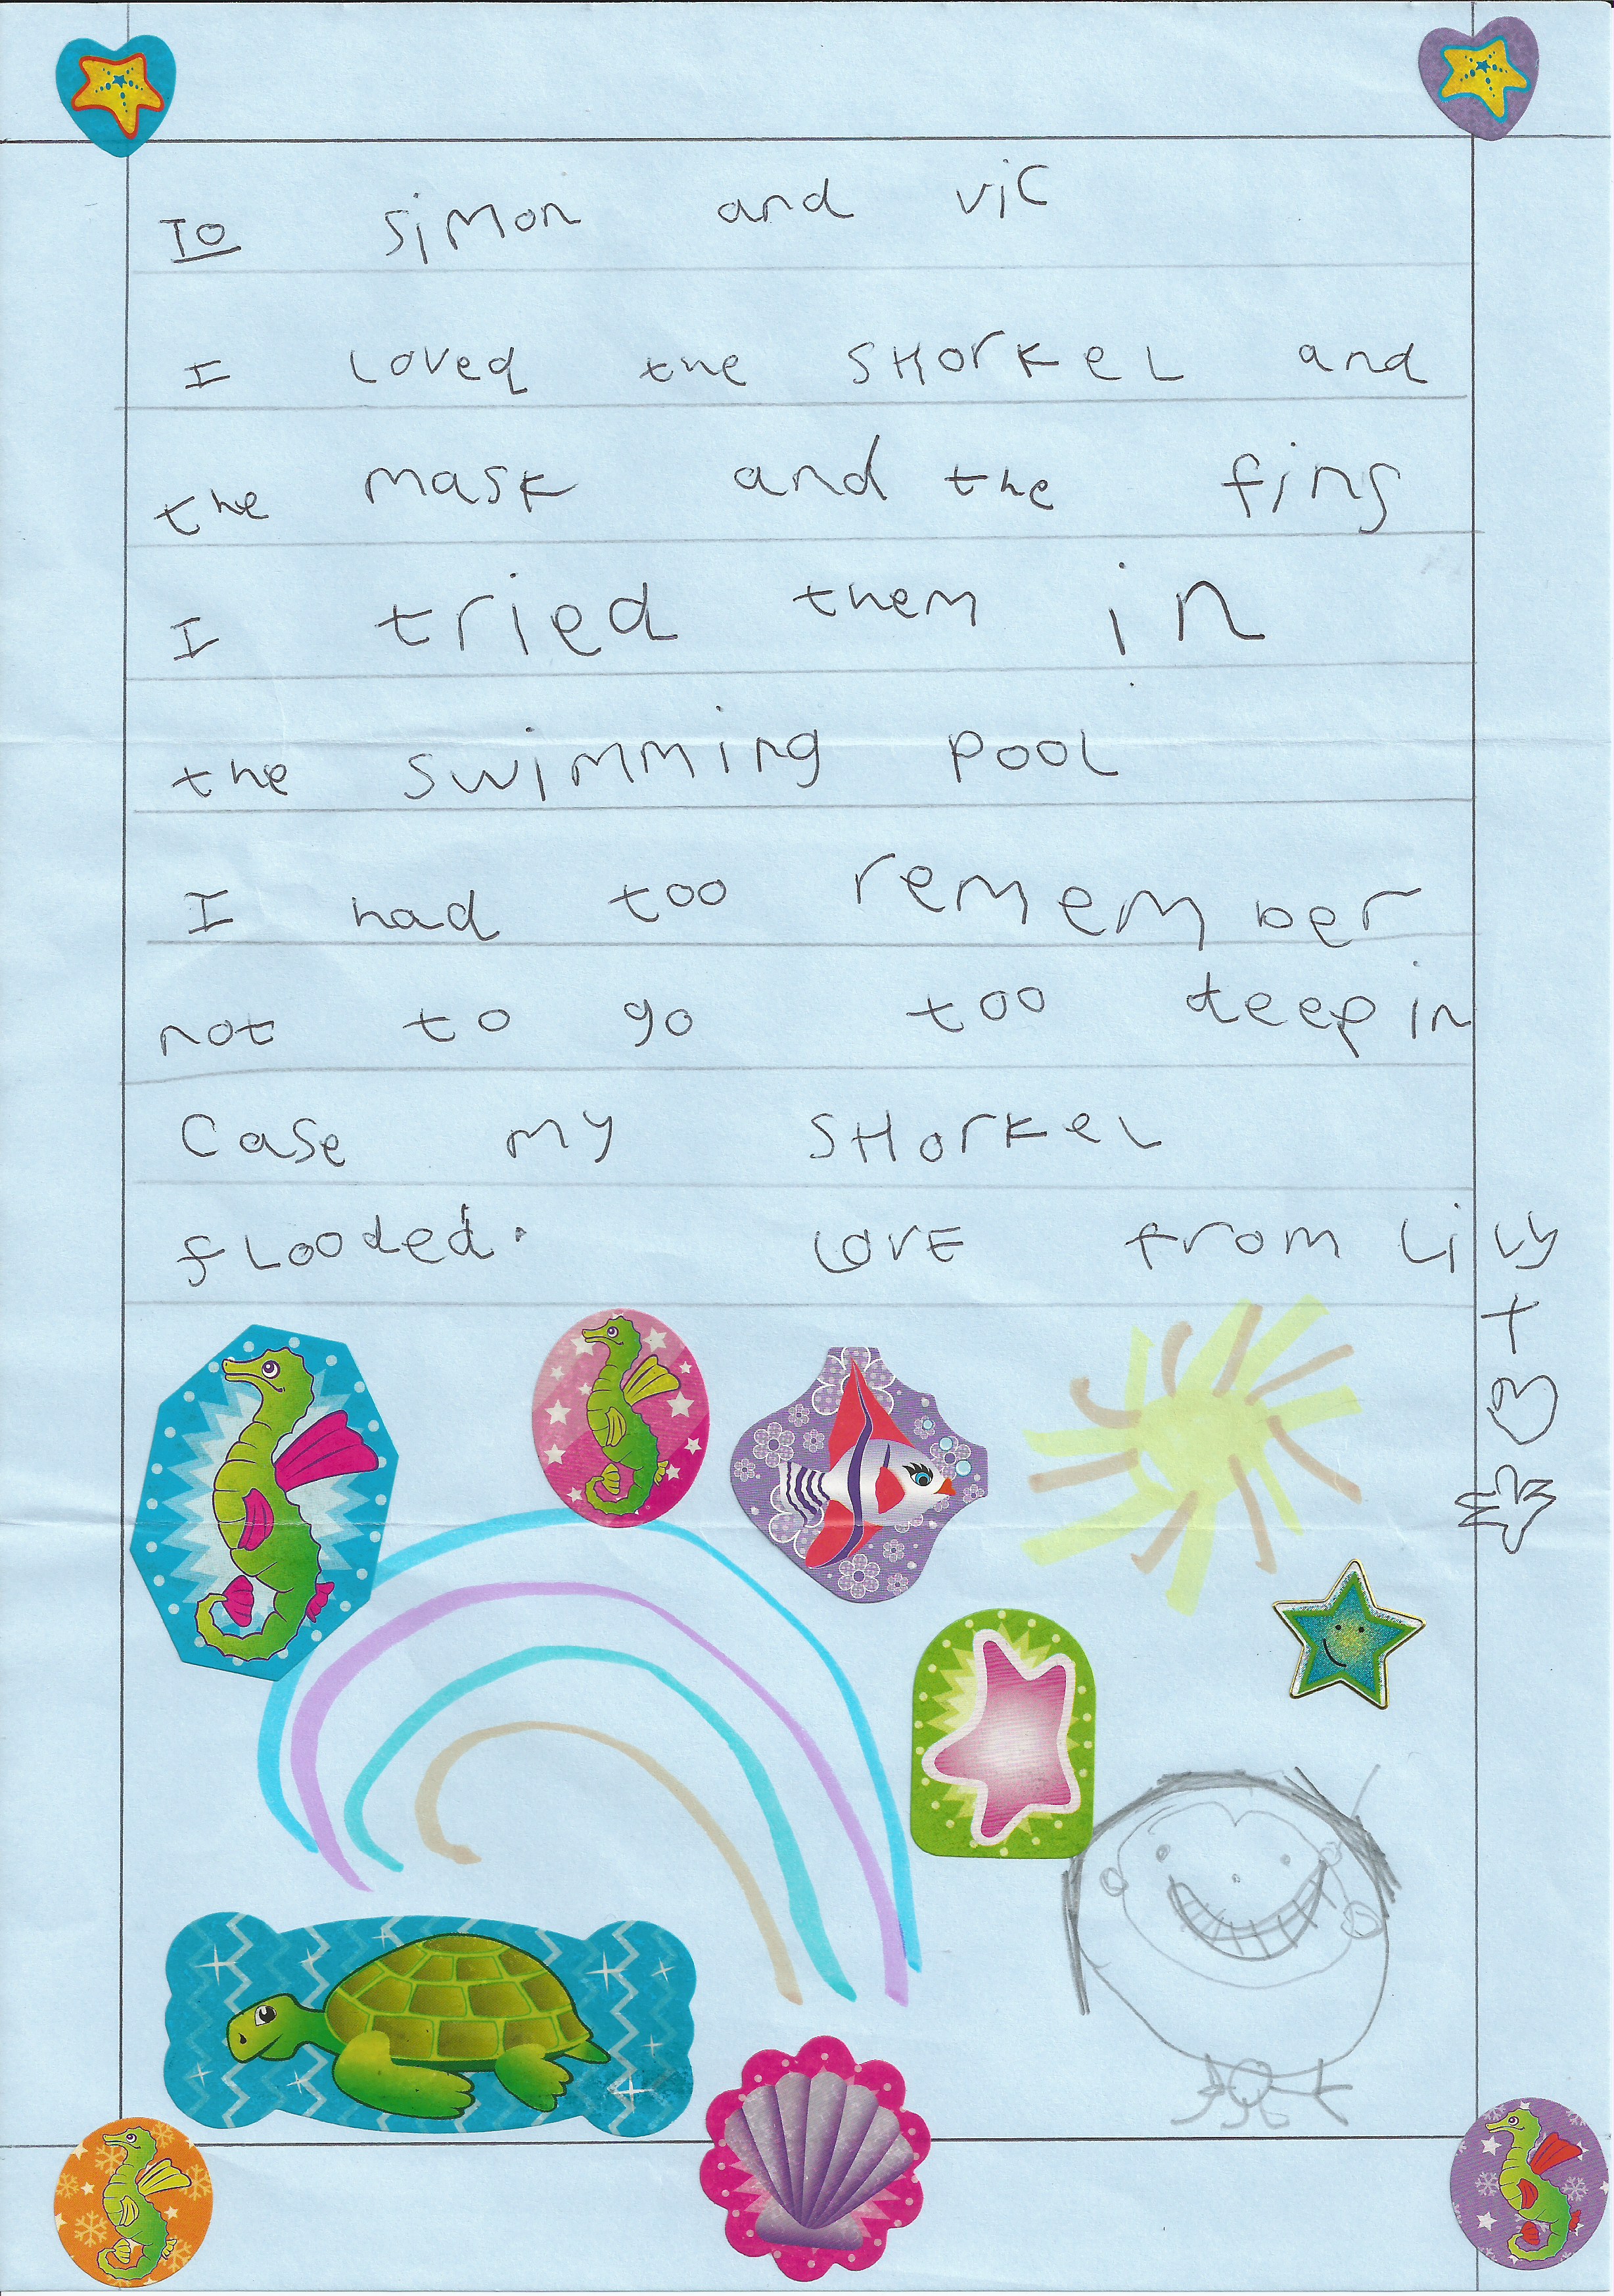 To simon and vic
I Loved the SHorkeL and
the mask and the fins
I tried them in
the swimming pooL
I had too remember
not to go too deep in
Case my SHorkeL
fLooded. LovE from Lily